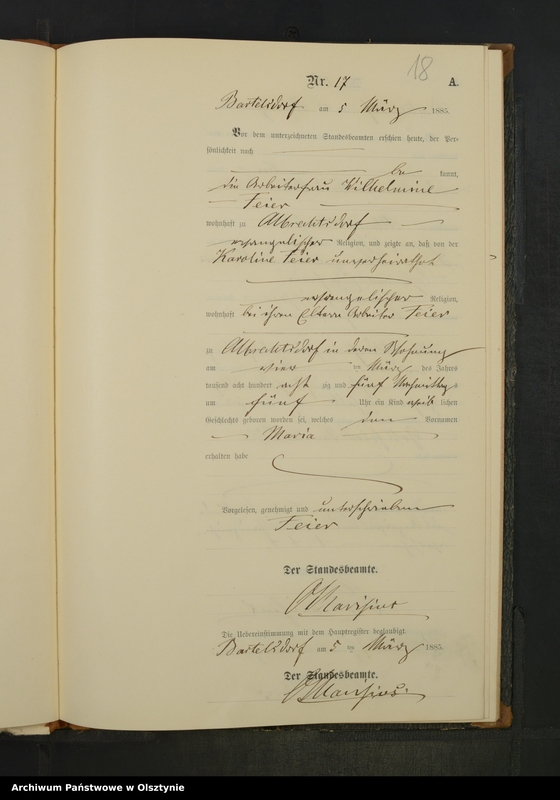 18
Nr. 17 A.
Bartelsdorf am 5 März 1885.
Vor dem unterzeichneten Standesbeamten erschien heute, der Per-
sönlichkeit nach
be kannt,
die Arbeiterfrau Wilhelmine
Feier
wohnhaft zu Albrechtsdorf
evangelischer Religion, und zeigte an, daß von der
Karoline Feier unverheirathet
evangelischer Religion,
wohnhaft bei ihren Eltern Arbeiter Feier
zu Albrechtsdorf in deren Wohnung
am vier ten März des Jahres
tausend acht hundert acht zig und fünf Nachmittags
um fünf Uhr ein Kind weib lichen
Geschlechts geboren worden sei, welches den Vornamen
Maria
erhalten habe
Vorgelesen, genehmigt und unterschrieben
Feier
Der Standesbeamte.
Die Uebereinstimmung mit dem Hauptregister beglaubigt.
Bartelsdorf am 5 ten März 1885.
Der Standesbeamte.
Archiwum Państwowe w Olsztynie